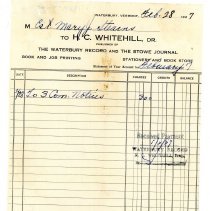 WATERBURY, VERMONT, Feb 28 1 7
M Est Mary J Stearns
TO H. C. WHITEHILL, DR.
PUBLISHER OF
THE WATERBURY RECORD AND THE STOWE JOURNAL
BOOK AND JOB PRINTING STATIONERY AND BOOK STORE
Statement of Your Account to February
DATE CHARGES CREDITS BALANCE
To 3 Com. Notices 300
RECEIVED PAYMENT
WATERBURY RECORD
H. C. WHITEHILL